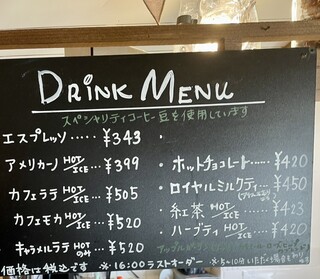 DRINK MENU
スペシャリティコーヒー豆を使用しています
エスプレッソ ····· ¥343
アメリカーノ HOT/ICE ···· ¥399
カフェラテ HOT/ICE ···· ¥505
カフェモカ HOT/ICE ···· ¥520
キャラメルラテ HOTのみ ···· ¥520
・ホットチョコレート ···· ¥420
・ロイヤルミルクティ ···· ¥450
・紅茶 HOT/ICE ···· ¥423
・ハーブティ HOT/ICE ···· ¥420
価格は税込です ※16:00ラストオーダー